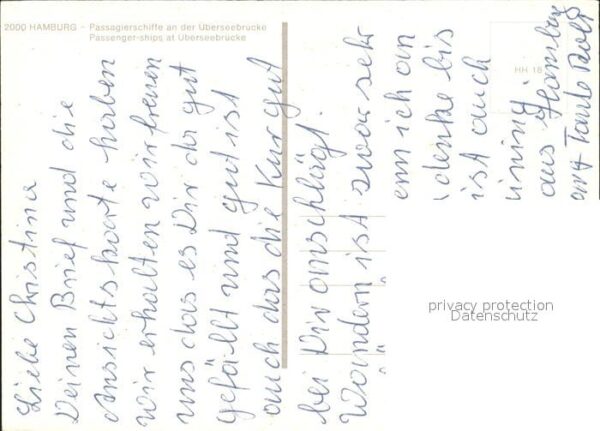 2000 HAMBURG - Passagierschiffe an der Überseebrücke
Passenger-ships at Überseebrücke
HH 18
Liebe Christina
Deinen Brief und die
Ansichtskarte haben
wir erhalten wir freuen
uns das es Dir da gut
gefällt und gut ist
auch das die Kur gut
bei Dir anschlägt.
Wandern ist zwar sehr
enn ich an
denke bis
ist auch
aus Hamburg
Tante
privacy protection
Datenschutz